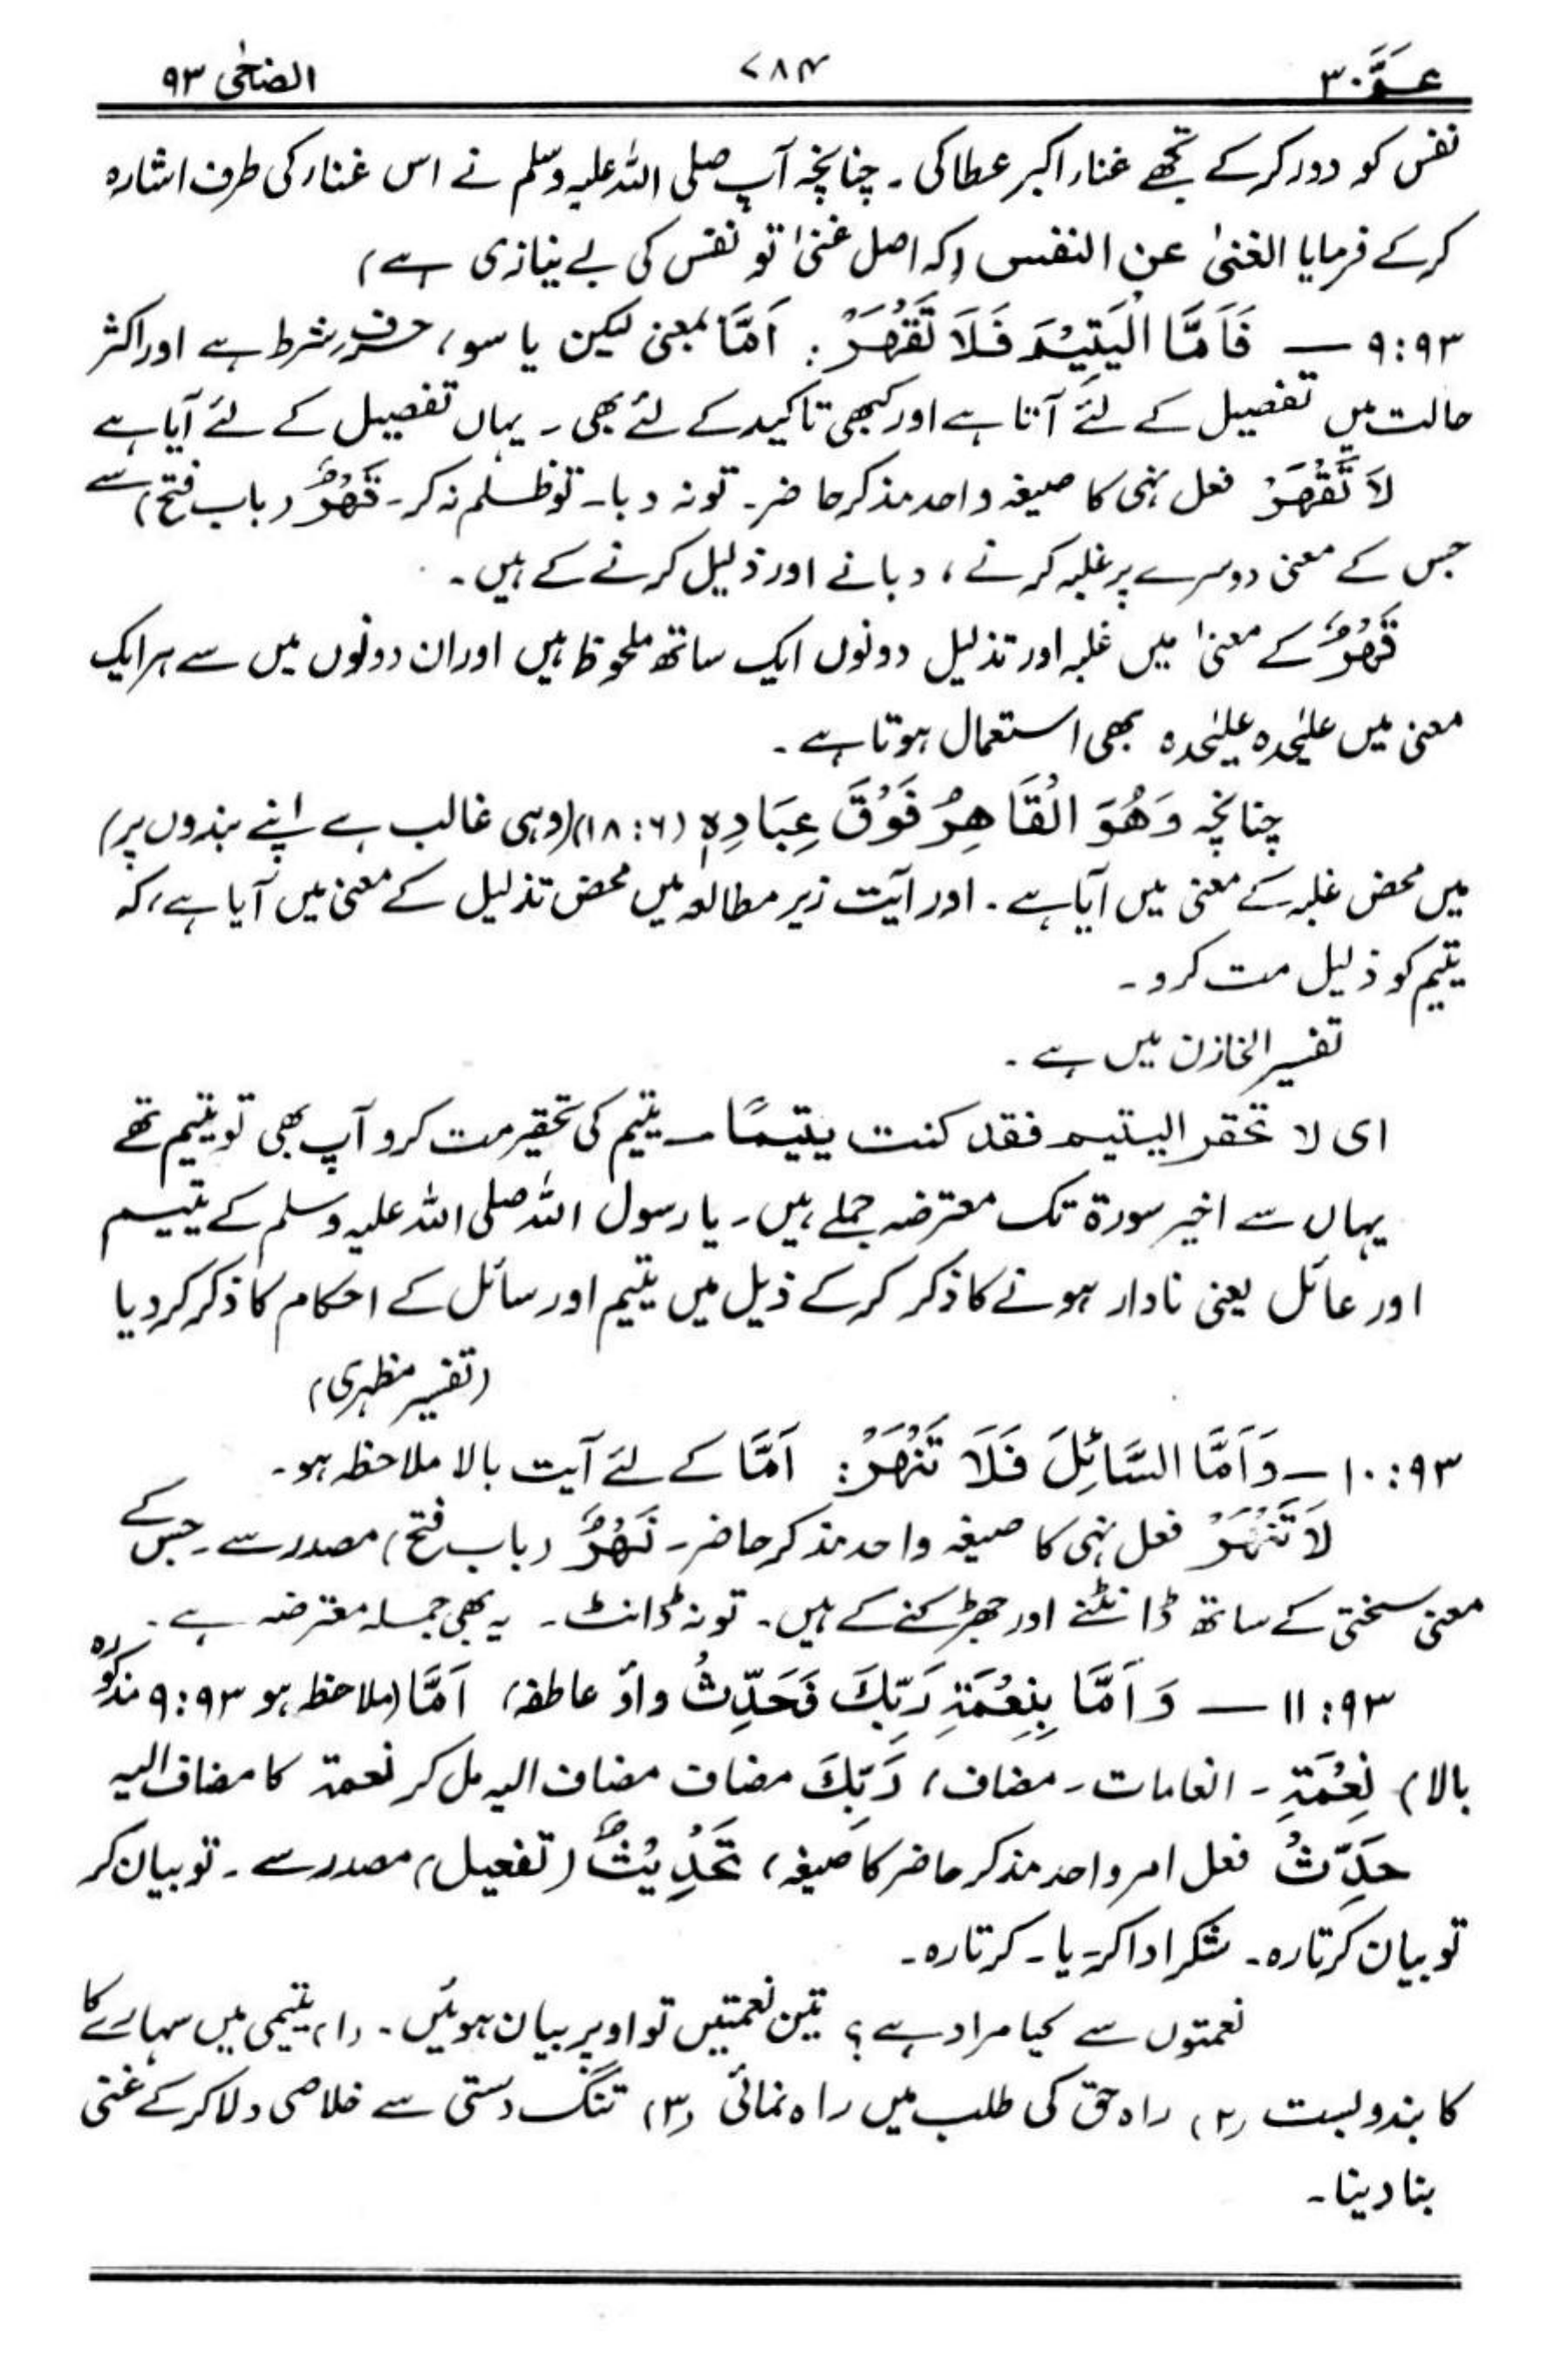 عَمَّ ۳۰ ۷۸۴ الضحٰی ۹۳
نفس کو دور کرکے تجھے غنار اکبر عطا کی۔ چنانچہ آپ صلی اللہ علیہ وسلم نے اس غنار کی طرف اشارہ
کرکے فرمایا الغنیٰ عن النفس (کہ اصل غنیٰ تو نفس کی بے نیازی ہے)
۹۳:۹ — فَاَمَّا الْیَتِیْمَ فَلَا تَقْهَرْ: اَمَّا بمعنی لیکن یا سو، حرف شرط ہے اور اکثر
حالت میں تفصیل کے لئے آتا ہے اور کبھی تاکید کے لئے بھی۔ یہاں تفصیل کے لئے آیا ہے
لَا تَقْهَرْ فعل نہی کا صیغہ واحد مذکر حاضر۔ تو نہ دبا۔ تو ظلم نہ کر۔ قَهْرٌ (باب فتح) سے
جس کے معنی دوسرے پر غلبہ کرنے، دبانے اور ذلیل کرنے کے ہیں۔
قَهْرٌ کے معنیٰ میں غلبہ اور تذلیل دونوں ایک ساتھ ملحوظ ہیں اور ان دونوں میں سے ہر ایک
معنی میں علیٰحدہ علیٰحدہ بھی استعمال ہوتا ہے۔
چنانچہ وَهُوَ الْقَاهِرُ فَوْقَ عِبَادِہٖ (۶:۱۸) (وہی غالب ہے اپنے بندوں پر)
میں محض غلبہ کے معنی میں آیا ہے۔ اور آیت زیر مطالعہ میں محض تذلیل کے معنی میں آیا ہے، کہ
یتیم کو ذلیل مت کرو۔
تفسیر الخازن میں ہے۔
ای لا تحقر الیتیم فقد کنت یتیمًا — یتیم کی تحقیر مت کرو آپ بھی تو یتیم تھے
یہاں سے اخیر سورۃ تک معترضہ جملے ہیں۔ یا رسول اللہ صلی اللہ علیہ وسلم کے یتیم
اور عائل یعنی نادار ہونے کا ذکر کرکے ذیل میں یتیم اور سائل کے احکام کا ذکر کر دیا
(تفسیر مظہری)
۹۳:۱۰ — وَاَمَّا السَّائِلَ فَلَا تَنْهَرْ: اَمَّا کے لئے آیت بالا ملاحظہ ہو۔
لَا تَنْهَرْ فعل نہی کا صیغہ واحد مذکر حاضر۔ نَهْرٌ (باب فتح) مصدر سے۔ جس کے
معنی سختی کے ساتھ ڈانٹنے اور جھڑکنے کے ہیں۔ تو نہ ڈانٹ۔ یہ بھی جملہ معترضہ ہے۔
۹۳:۱۱ — وَ اَمَّا بِنِعْمَةِ رَبِّكَ فَحَدِّثْ واؤ عاطفہ، اَمَّا (ملاحظہ ہو ۹۳:۹ مذکورہ
بالا) نِعْمَةِ۔ انعامات۔ مضاف، رَبِّكَ مضاف مضاف الیہ مل کر نعمۃ کا مضاف الیہ
حَدِّثْ فعل امر واحد مذکر حاضر کا صیغہ، تَحْدِیْثٌ (تفعیل) مصدر سے۔ تو بیان کر
تو بیان کرتا رہ۔ شکر ادا کر۔ یا۔ کرتا رہ۔
نعمتوں سے کیا مراد ہے؟ تین نعمتیں تو اوپر بیان ہوئیں۔ (۱) یتیمی میں سہارے کا
کا بندوبست (۲) راہ حق کی طلب میں راہ نمائی (۳) تنگ دستی سے خلاصی دلا کر کے غنی
بنا دینا۔